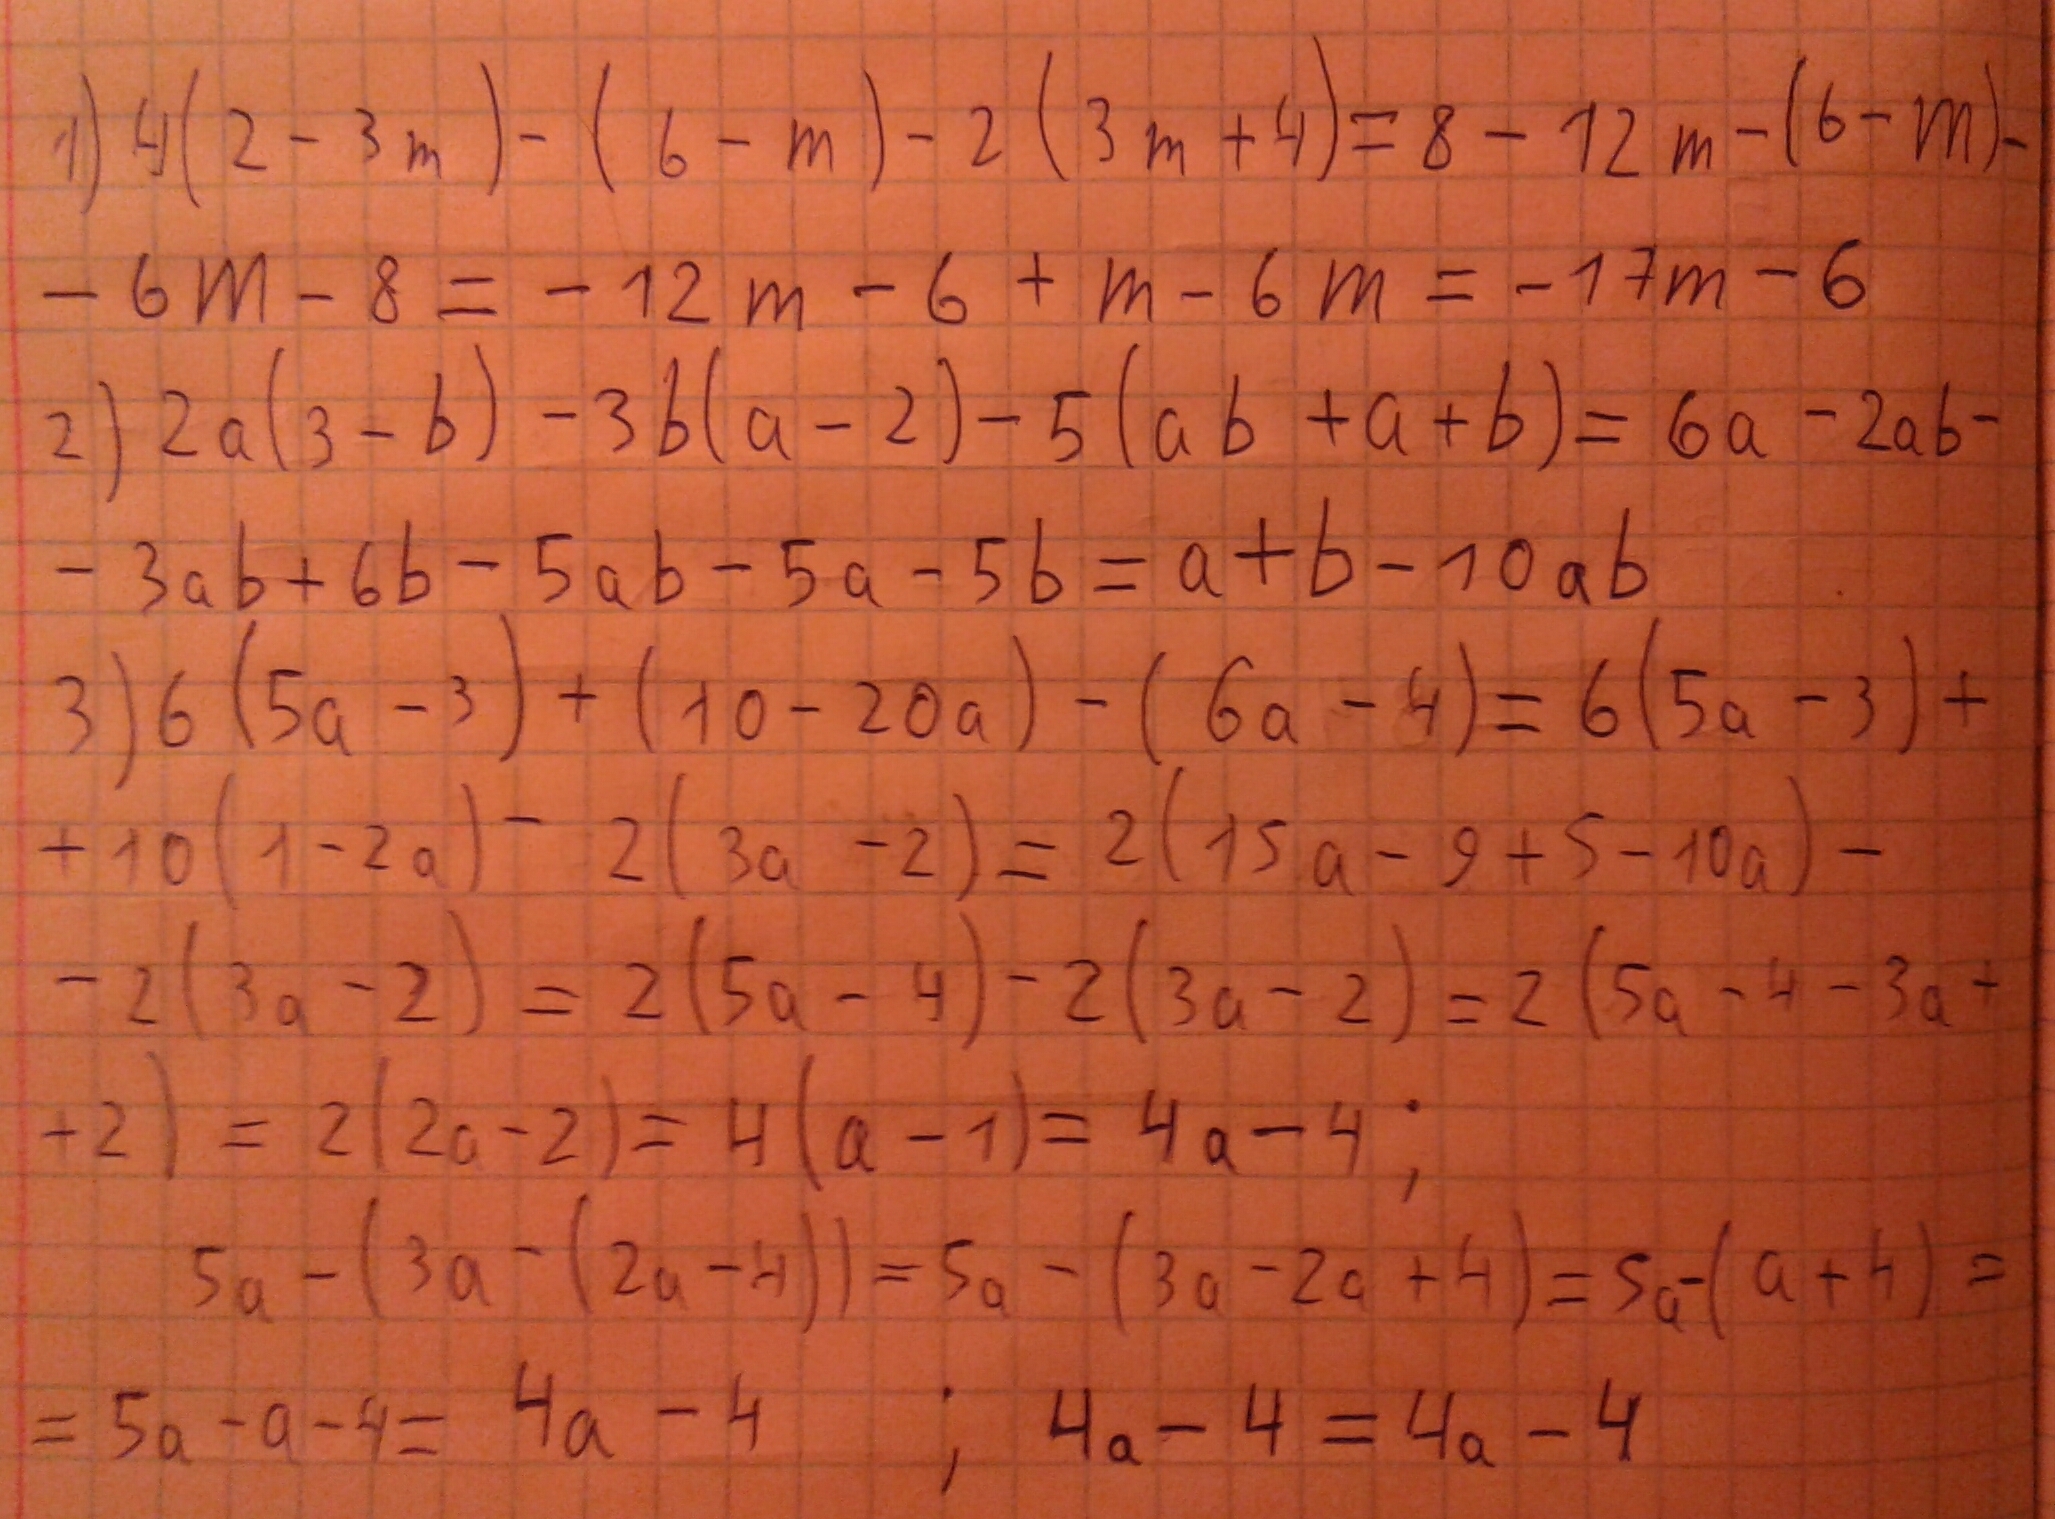 1) 4(2-3m)-(6-m)-2(3m+4)=8-12m-(6-m)-
-6m-8=-12m-6+m-6m=-17m-6
2) 2a(3-b)-3b(a-2)-5(ab+a+b)=6a-2ab-
-3ab+6b-5ab-5a-5b=a+b-10ab
3) 6(5a-3)+(10-20a)-(6a-4)=6(5a-3)+
+10(1-2a)-2(3a-2)=2(15a-9+5-10a)-
-2(3a-2)=2(5a-4)-2(3a-2)=2(5a-4-3a+
+2)=2(2a-2)=4(a-1)=4a-4;
5a-(3a-(2a-4))=5a-(3a-2a+4)=5a-(a+4)=
=5a-a-4=4a-4 ; 4a-4=4a-4